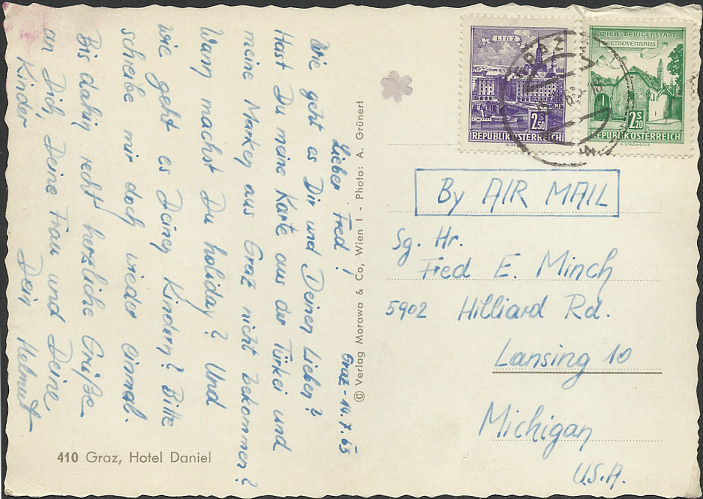 Graz - 14.7.65
Lieber Fred!
Wie geht es Dir und Deinen Lieben?
Hast Du meine Karte aus der Türkei und
meine Marken aus Graz nicht bekommen?
Wann machst Du holiday? Und
wie geht es Deinen Kindern? Bitte
schreibe mir doch wieder einmal.
Bis dahin recht herzliche Grüße
an Dich, Deine Frau und Deine
Kinder
Dein Helmut
410 Graz, Hotel Daniel
© Verlag Morawa & Co, Wien I - Photo: A. Grünert
LINZ
2.50
REPUBLIK ÖSTERREICH
WIEN-HEILIGENSTADT
BEETHOVENHAUS
2.20
REPUBLIK ÖSTERREICH
GRAZ
By AIR MAIL
Sg. Hr.
Fred E. Minch
5902 Hilliard Rd.
Lansing 10
Michigan
U.S.A.